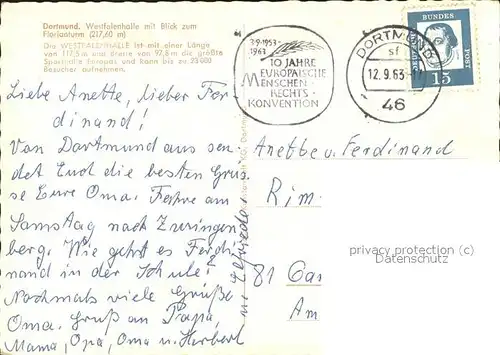 Dortmund. Westfalenhalle mit Blick zum
Florianturm (217,60 m)
Die WESTFALENHALLE ist mit einer Länge
von 117,5 m und einer Breite von 97,8 m die größte
Sporthalle Europas und kann bis zu 23000
Besucher aufnehmen.
Liebe Anette, lieber Fer-
dinand!
Von Dortmund aus sen-
det Euch die besten Grüs-
se Eure Oma. Fahre am
Samstag nach Zwingen
berg. Wie geht es Ferdi
nand in der Schule?
Nochmals viele Grüße
Oma. Gruß an Papa,
Mama, Opa, Oma u. Herbert
3.9.1953
1963
10 JAHRE
EUROPÄISCHE
MENSCHEN-
RECHTS-
KONVENTION
DORTMUND
sf
12.9.63
46
DEUTSCHE
BUNDES
POST
15
Anette u. Ferdinand
Rim
81 Gar
Am
privacy protection (c)
Datenschutz